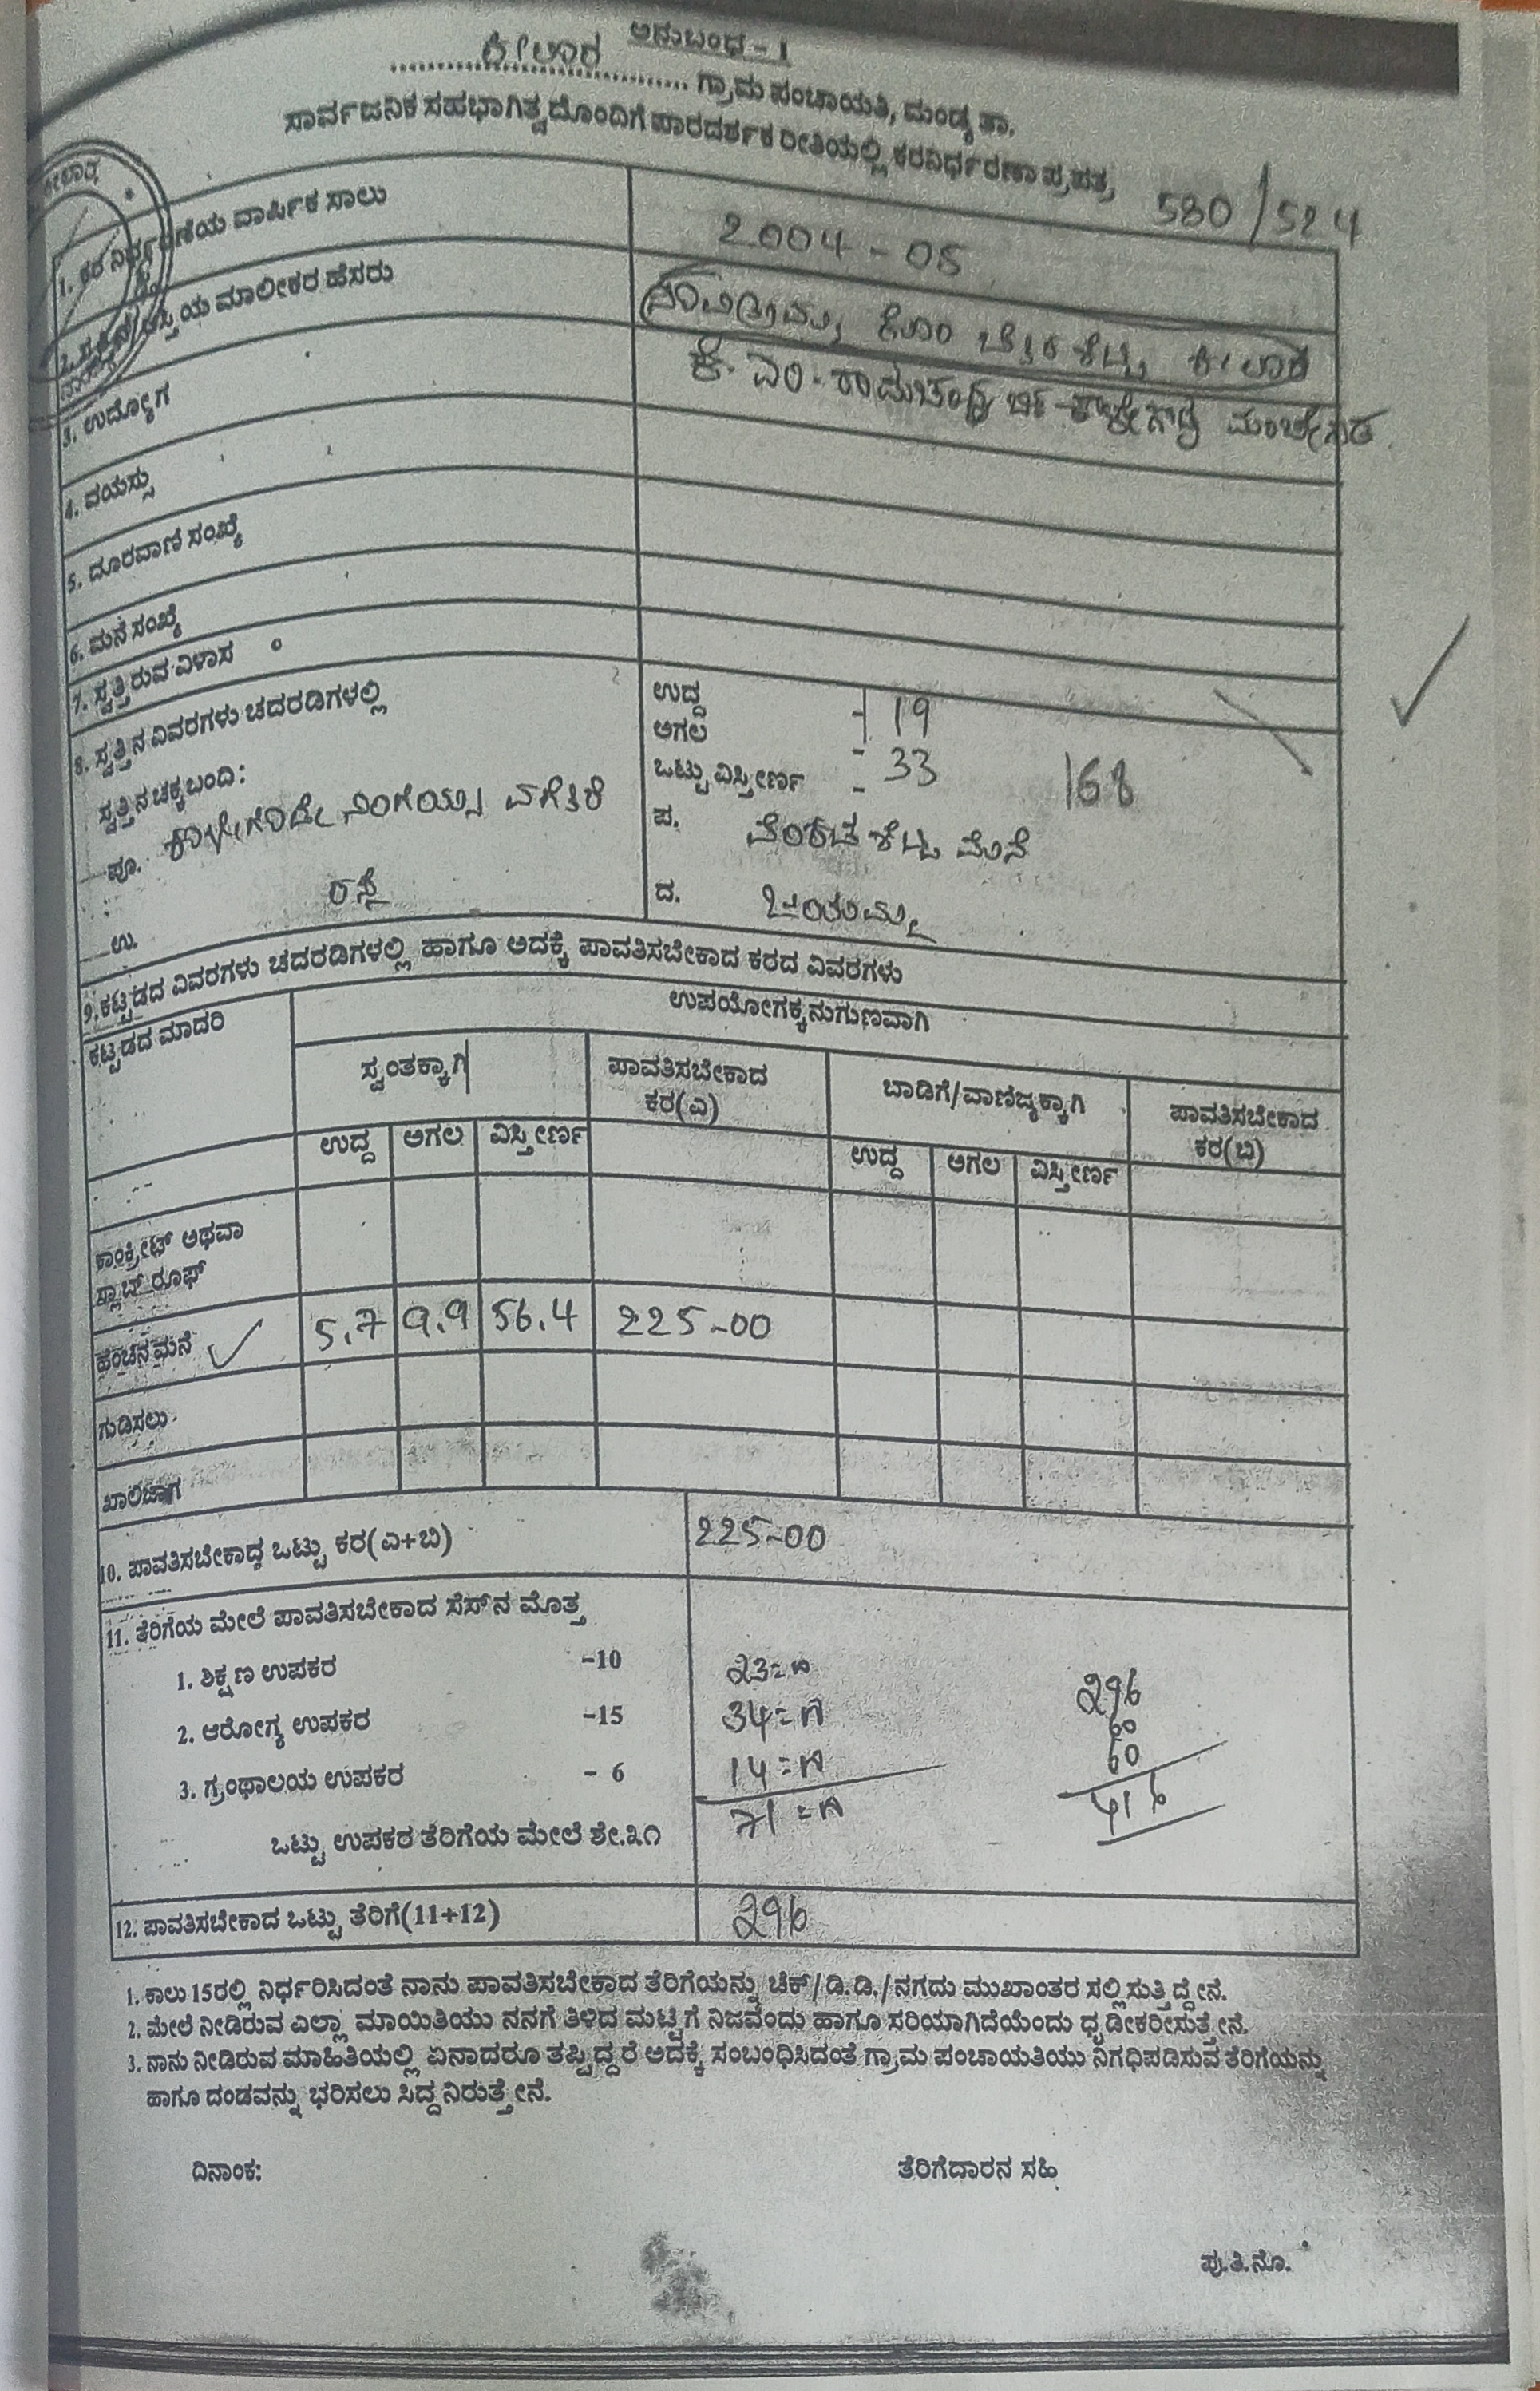 ಅನುಬಂಧ - I
ಕೀಲಾರ ಗ್ರಾಮ ಪಂಚಾಯತಿ, ಮಂಡ್ಯ ತಾ.
ಸಾರ್ವಜನಿಕ ಸಹಭಾಗಿತ್ವದೊಂದಿಗೆ ಪಾರದರ್ಶಕ ರೀತಿಯಲ್ಲಿ ಕರನಿರ್ಧರಣಾ ಪ್ರಪತ್ರ
580/524
1. ಕರ ನಿರ್ಧರಣೆಯ ವಾರ್ಷಿಕ ಸಾಲು 2004-05
2. ಆಸ್ತಿಯ ಮಾಲೀಕರ ಹೆಸರು ಸಾವಿತ್ರಮ್ಮ ಕೋಂ ಕೀಲಾರ
ಕೆ.ಎಂ.ರಾಮಚಂದ್ರ ಬಿನ್ ಕಾಳೇಗೌಡ
3. ಉದ್ಯೋಗ
4. ವಯಸ್ಸು
5. ದೂರವಾಣಿ ಸಂಖ್ಯೆ
6. ಮನೆ ಸಂಖ್ಯೆ
7. ಸ್ವತ್ತಿರುವ ವಿಳಾಸ
8. ಸ್ವತ್ತಿನ ವಿವರಗಳು ಚದರಡಿಗಳಲ್ಲಿ ಉದ್ದ - 19
ಅಗಲ - 33
ಒಟ್ಟು ವಿಸ್ತೀರ್ಣ - 168
ಸ್ವತ್ತಿನ ಚಕ್ಕಬಂದಿ:
ಪೂ. ನಿಂಗಯ್ಯ ಪ. ವೆಂಕಟಶೆಟ್ಟಿ ಮನೆ
ಉ. ರಸ್ತೆ ದ. ಜಯಮ್ಮ
9. ಕಟ್ಟಡದ ವಿವರಗಳು ಚದರಡಿಗಳಲ್ಲಿ ಹಾಗೂ ಅದಕ್ಕೆ ಪಾವತಿಸಬೇಕಾದ ಕರದ ವಿವರಗಳು
ಕಟ್ಟಡದ ಮಾದರಿ ಉಪಯೋಗಕ್ಕನುಗುಣವಾಗಿ
ಸ್ವಂತಕ್ಕಾಗಿ ಪಾವತಿಸಬೇಕಾದ ಕರ(ಎ) ಬಾಡಿಗೆ/ವಾಣಿಜ್ಯಕ್ಕಾಗಿ ಪಾವತಿಸಬೇಕಾದ ಕರ(ಬಿ)
ಉದ್ದ ಅಗಲ ವಿಸ್ತೀರ್ಣ ಉದ್ದ ಅಗಲ ವಿಸ್ತೀರ್ಣ
ಕಾಂಕ್ರೀಟ್ ಅಥವಾ
ಸ್ಲಾಬ್ ರೂಫ್
ಹಂಚಿನ ಮನೆ ✓ 5.7 9.9 56.4 225-00
ಗುಡಿಸಲು
ಖಾಲಿಜಾಗ
10. ಪಾವತಿಸಬೇಕಾದ್ದ ಒಟ್ಟು ಕರ(ಎ+ಬಿ) 225-00
11. ತೆರಿಗೆಯ ಮೇಲೆ ಪಾವತಿಸಬೇಕಾದ ಸೆಸ್‌ನ ಮೊತ್ತ
1. ಶಿಕ್ಷಣ ಉಪಕರ -10 23=00 296
2. ಆರೋಗ್ಯ ಉಪಕರ -15 34=00 60
3. ಗ್ರಂಥಾಲಯ ಉಪಕರ - 6 14=00 60
ಒಟ್ಟು ಉಪಕರ ತೆರಿಗೆಯ ಮೇಲೆ ಶೇ.೩೧ 71=00 416
12. ಪಾವತಿಸಬೇಕಾದ ಒಟ್ಟು ತೆರಿಗೆ(11+12) 296
1. ಕಾಲು 15ರಲ್ಲಿ ನಿರ್ಧರಿಸಿದಂತೆ ನಾನು ಪಾವತಿಸಬೇಕಾದ ತೆರಿಗೆಯನ್ನು ಚೆಕ್/ಡಿ.ಡಿ./ನಗದು ಮುಖಾಂತರ ಸಲ್ಲಿಸುತ್ತಿದ್ದೇನೆ.
2. ಮೇಲೆ ನೀಡಿರುವ ಎಲ್ಲಾ ಮಾಯಿತಿಯು ನನಗೆ ತಿಳಿದ ಮಟ್ಟಿಗೆ ನಿಜವೆಂದು ಹಾಗೂ ಸರಿಯಾಗಿದೆಯೆಂದು ಧೃಡೀಕರೀಸುತ್ತೇನೆ.
3. ನಾನು ನೀಡಿರುವ ಮಾಹಿತಿಯಲ್ಲಿ ಏನಾದರೂ ತಪ್ಪಿದ್ದರೆ ಅದಕ್ಕೆ ಸಂಬಂಧಿಸಿದಂತೆ ಗ್ರಾಮ ಪಂಚಾಯತಿಯು ನಿಗಧಿಪಡಿಸುವ ತೆರಿಗೆಯನ್ನು
ಹಾಗೂ ದಂಡವನ್ನು ಭರಿಸಲು ಸಿದ್ದನಿರುತ್ತೇನೆ.
ದಿನಾಂಕ: ತೆರಿಗೆದಾರನ ಸಹಿ
ಪು.ತಿ.ನೊ.